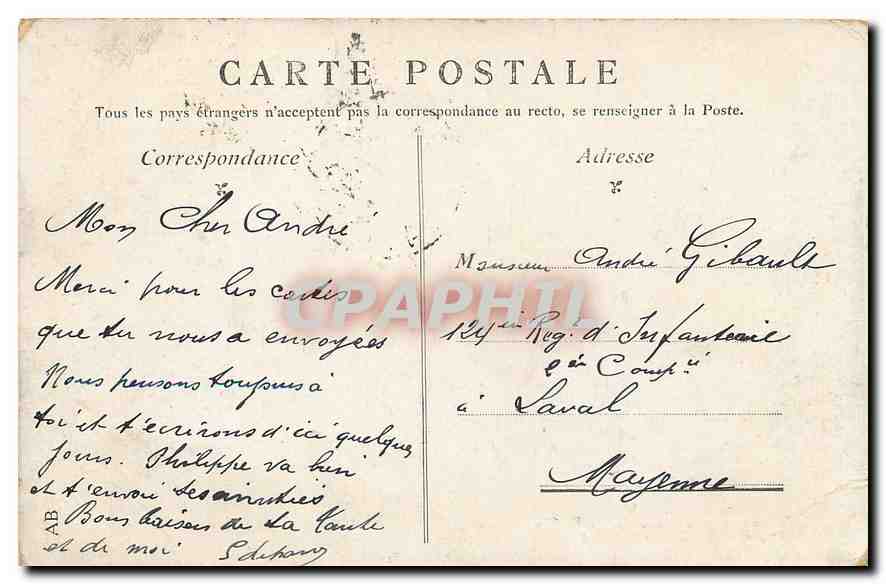 CARTE POSTALE
Tous les pays étrangers n'acceptent pas la correspondance au recto, se renseigner à la Poste.
Correspondance
Mon Cher André
Merci pour les cartes
que tu nous a envoyées
Nous pensons toujours à
toi et t'écrirons d'ici quelques
jours. Philippe va bien
et t'envoie ses amitiés
Bons baisers de ta Tante
et de moi
AB
Adresse
Monsieur André Gibault
124 Reg. d'Infanterie
2 Comp
à Laval
Mayenne
CPAPHIL